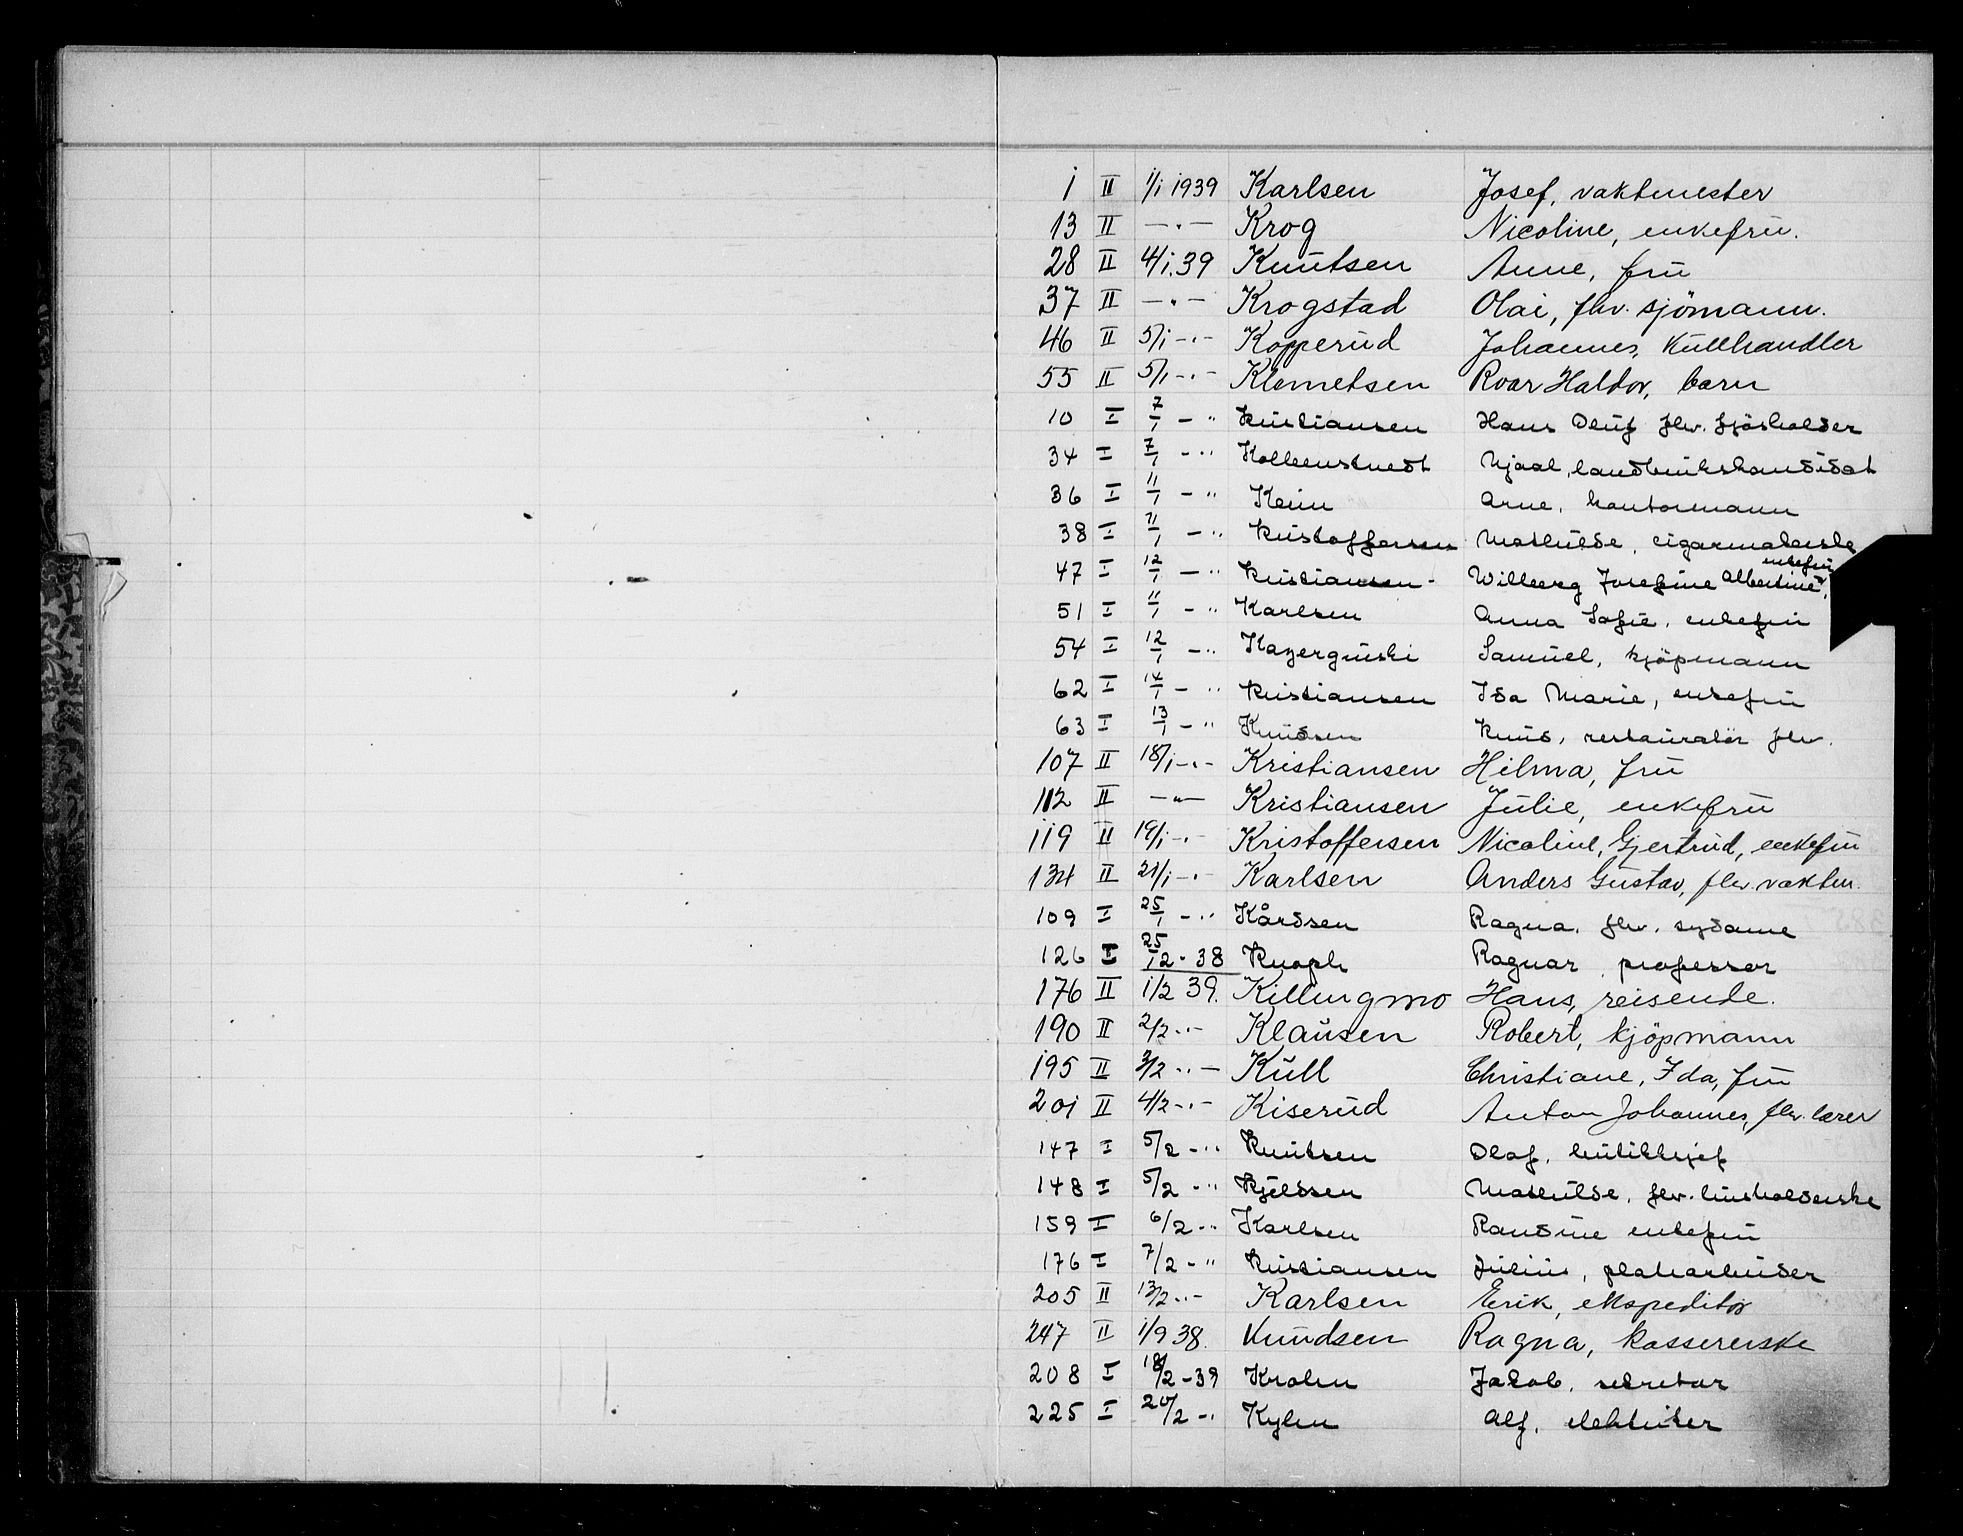 1 II 1/1 1939 Karlsen Josef, vaktmester
13 II — " — Krog Nicoline, enkefru.
28 II 4/1.39 Knutsen Anne, fru
37 II — " — Krogstad Olai, fhv. sjömann.
46 II 5/1 - " - Kopperud Johannes, kullhandler
55 II 5/1 - " - Klemetsen Roar Haldor, barn
10 I 7/1 - " Kristiansen Hans Oluf fhv. fjösholder
34 I 7/1 - " Njaal, landbrukskandidat
36 I 11/1 - " Keim Arne, kontormann
38 I 11/1 - " Kristoffersen Mathilde, cigarmakerske
47 I 12/1 - " Kristiansen - Wilberg Josefine Albertine, enkefru
51 I 11/1 - " Karlsen Anna Sofie, enkefru
54 I 12/1 - " Kazerginski Samuel, kjöpmann
62 I 14/1 - " Kristiansen Ida Marie, enkefru
63 I 13/1 - " Knudsen Knud, restauratör fhv.
107 II 18/1 - " - Kristiansen Hilma, fru
112 II — " — Kristiansen Julie, enkefru
119 II 19/1 - " - Kristoffersen Nicoline, Gjertrud, enkefru
134 II 21/1 - " - Karlsen Anders Gustav, fhv. vaktm.
109 I 25/1 - " Kårdsen Ragna. fhv. sydame
126 I 25/12 - 38 Knoph Ragnar, professor
176 II 1/2 39. Killingmo Hans, reisende.
190 II 2/2 - " - Klausen Robert, kjöpmann
195 II 3/2 - " - Kull Christiane, Ida, fru
201 II 4/2 - " - Kiserud Anton Johannes, fhv. lærer
147 I 5/2 - " Knutsen Olaf, butikksjef
148 I 5/2 - " Kjeldsen Mathilde, fhv. husholderske
159 I 6/2 - " Karlsen Randine enkefru
176 I 7/2 - " Kristiansen Julius, platearbeider
205 II 13/2 - " - Karlsen Erik, ekspeditör
247 II 1/9 38. Knudsen Ragna, kassererske
208 I 18/2 - 39 Krohn Jakob, sekretær
225 I 20/2 - " Kylen Alf, elektriker